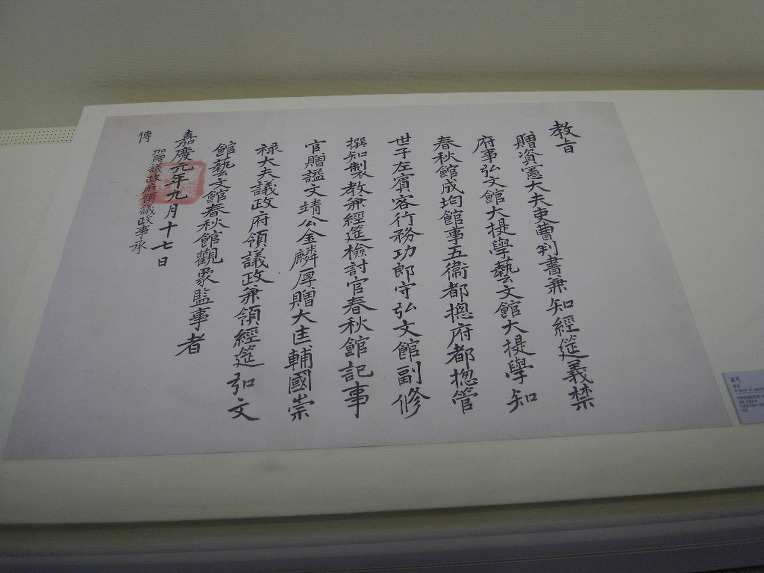 教旨
贈資憲大夫吏曹判書兼知經筵義禁
府事弘文館大提學藝文館大提學知
春秋館成均館事五衛都摠府都摠管
世子左賓客行務功郎守弘文館副修
撰知製敎兼經筵檢討官春秋館記事
官贈諡文靖公金麟厚贈大匡輔國崇
祿大夫議政府領議政兼領經筵弘文
館藝文館春秋館觀象監事者
嘉慶元年九月十七日
加贈議政府領議政事承
傳
교지